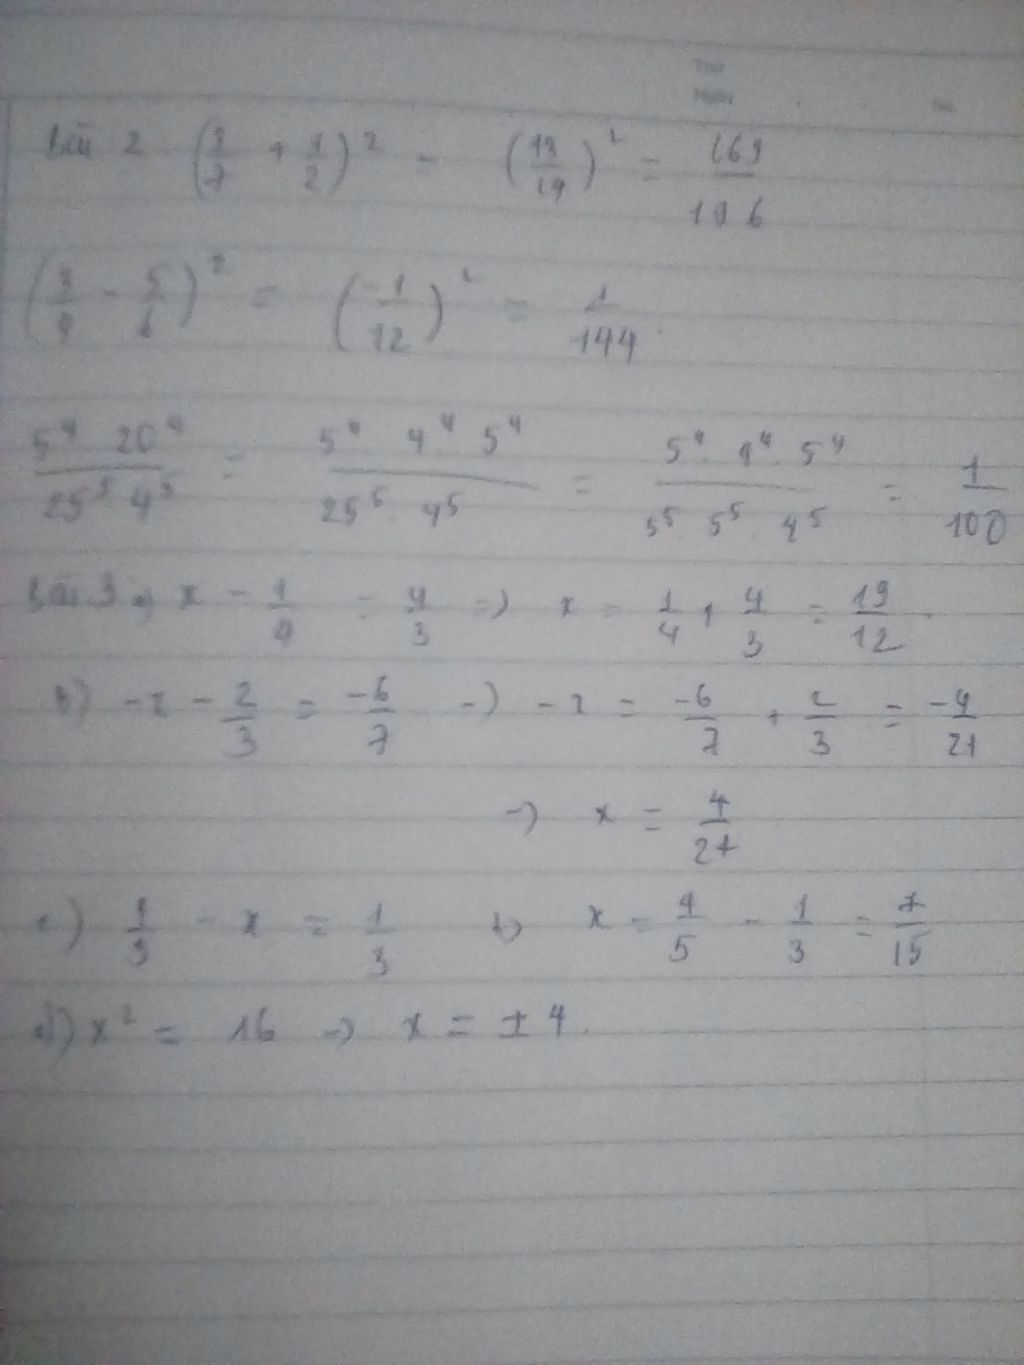 Bài 2. (3/7 + 1/2)² = (13/14)² = 169/196
(3/4 - 5/6)² = (-1/12)² = 1/144
5⁴ . 20⁴ / 25⁵ . 4⁵ = 5⁴ 4⁴ 5⁴ / 25⁵ . 4⁵ = 5⁴ . 4⁴ . 5⁴ / 5⁵ 5⁵ 4⁵ = 1/100
Bài 3 a) x - 1/4 = 4/3 => x = 1/4 + 4/3 = 19/12
b) -x - 2/3 = -6/7 -) -x = -6/7 + 2/3 = -4/21
-) x = 4/21
c) - x = 1/3 x = 4/5 - 1/3 = 7/15
d) x² = 16 -) x = ± 4.